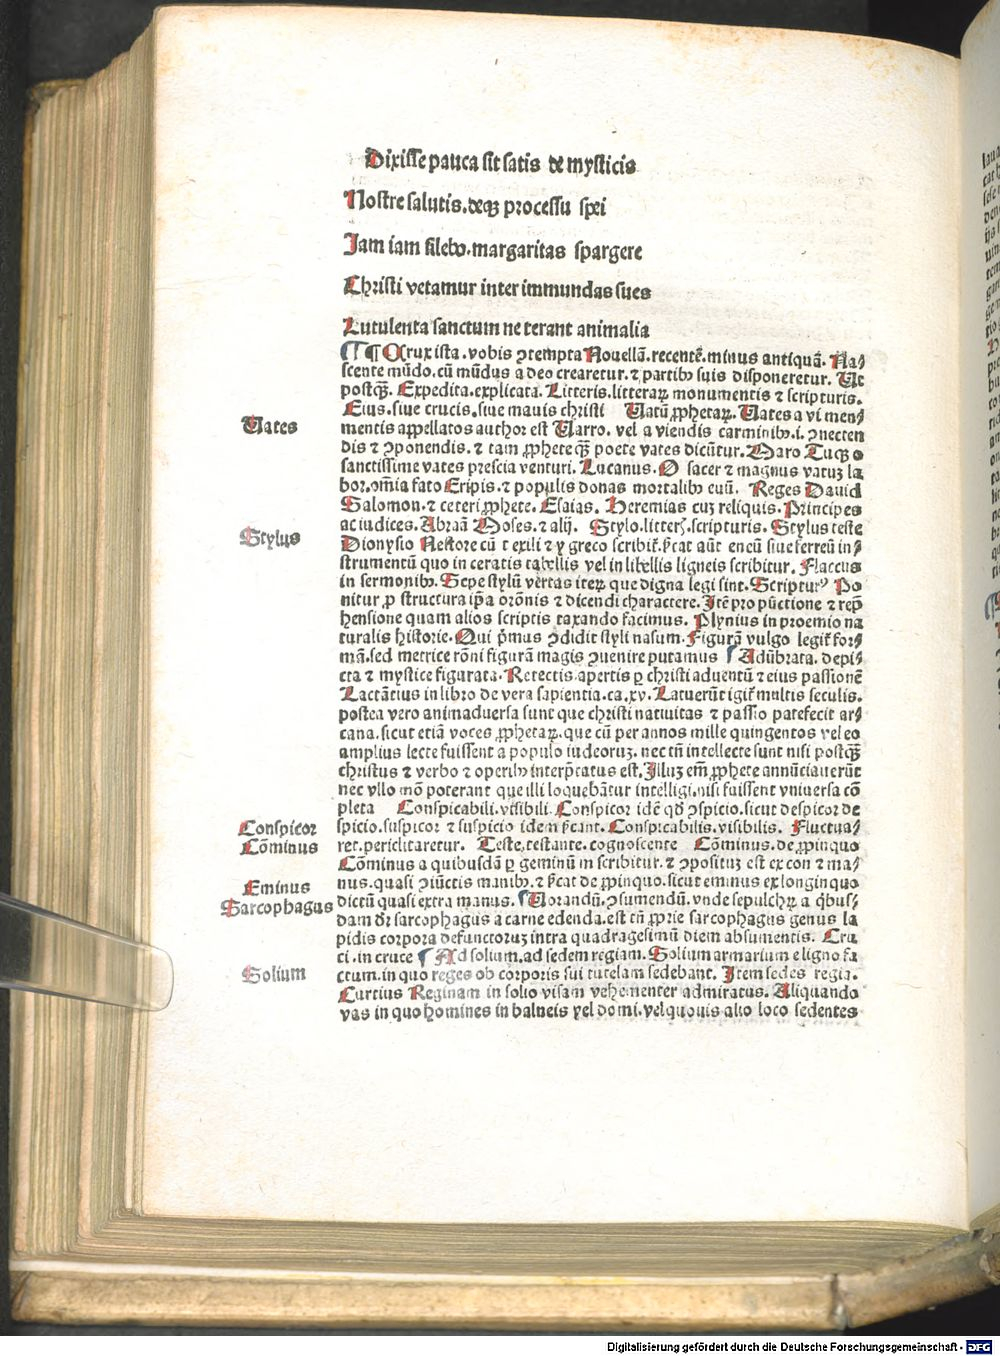 Dixisse pauca sit satis de mysticis
Nostre salutis.deqꝫ processu spei
Jam iam silebo.margaritas spargere
Christi vetamur inter immundas sues
Lutulenta sanctum ne terant animalia
¶ ¶ Crux ista.vobis ↄtempta Nouellā.recentē.minus antiquā. Na⸗
scente mūdo.cū mūdus a deo crearetur.⁊ partibꝰ suis disponeretur. Ut
postqꝫ̄. Expedita.explicata. Litteris.litteraꝝ monumentis ⁊ scripturis.
Eius.siue crucis.siue mauis christi Uatū ꝓphetaꝝ. Uates a vi men⸗
Uates
mentis appellatos author est Uarro. vel a viendis carminibꝰ.i. ↄnecten
dis ⁊ ↄponendis. ⁊ tam ꝓphete qꝫ̄ poete vates dicūtur. Maro Tuqꝫ o
sanctissime vates prescia venturi. Lucanus. O sacer ⁊ magnus vatuꝫ la
bor.om̄ia fato Eripis.⁊ populis donas mortalibꝰ euū. Reges Dauid
Salomon.⁊ ceteri ꝓphete. Esaias. Heremias cuꝫ reliquis. Principes
ac iudices. Abraā Moses.⁊ alij. Stylo.litterꝭ.scripturis. Stylus teste
Stylus
Dionysio Nestore cū t exili ⁊ y greco scribit̄.
strumentū quo in ceratis tabellis vel in libellis ligneis scribitur. Flaccus
in sermonibꝰ. Sepe stylū vertas iteꝝ que digna legi sint. Scripturꝰ Po
nitur ꝓ structura ip̄a orōnis ⁊ dicendi charactere. Itē pro pūctione ⁊ rep̄
hensione quam alios scriptis taxando facimus. Plynius in proemio na
turalis historie. Qui p̄mus ↄdidit styli nasum. Figurā vulgo legit̄ for⸗
mā.sed metrice rōni figurā magis ↄuenire putamus ¶ Adūbrata. depi⸗
cta ⁊ mystice figurata. Retectis.apertis ꝑ christi aduentū ⁊ eius passionē
Lactātius in libro de vera sapientia.ca.xv. Latuerūt igit̄ multis seculis.
postea vero animaduersa sunt que christi natiuitas ⁊ passio patefecit ar⸗
cana.sicut etiā voces ꝓphetaꝝ.que cū per annos mille quingentos vel eo
amplius lecte fuissent a populo iudeoruꝫ. nec tn̄ intellecte sunt nisi postqꝫ̄
christus ⁊ verbo ⁊ operibꝰ interp̄tatus est. Illuꝫ em̄ ꝓphete annūciauerūt
nec vllo mō poterant que illi loquebātur intelligi.nisi fuissent vniuersa cō
pleta Conspicabili.visibili. Conspicor idē qđ ↄspicio.sicut despicor de
Conspicor
spicio.suspicor ⁊ suspicio idem p̄cant. Conspicabilis.visibilis. Fluctua⸗
Cōminus
ret.periclitaretur. Teste.testante.cognoscente Cōminus.de ꝓpinquo
Cōminus a quibusdā ꝑ geminū m scribitur.⁊ ↄpositus est ex con ⁊ ma⸗
Eminus
nus.quasi ↄiūctis manibꝰ.⁊ p̄cat de ꝓpinquo.sicut eminus ex longinquo
Sarcophagus
dictū quasi extra manus. ¶ Uorandū.ↄsumendū.vnde sepulchꝝ a q̇bus⸗
dam dr̄ sarcophagus a carne edenda.est tn̄ ꝓprie sarcophagus genus la
pidis corpora defunctoruꝫ intra quadragesimū diem absumentis. Cru
ci.in cruce ¶ Ad solium.ad sedem regiam. Solium armarium e ligno fa
Solium
ctum.in quo reges ob corporis sui tutelam sedebant. Item sedes regia.
Curtius Reginam in solio visam vehementer admiratus. Aliquando
vas in quo homines in balneis vel domi.vel quouis alio loco sedentes
Digitalisierung gefördert durch die Deutsche Forschungsgemeinschaft - DFG